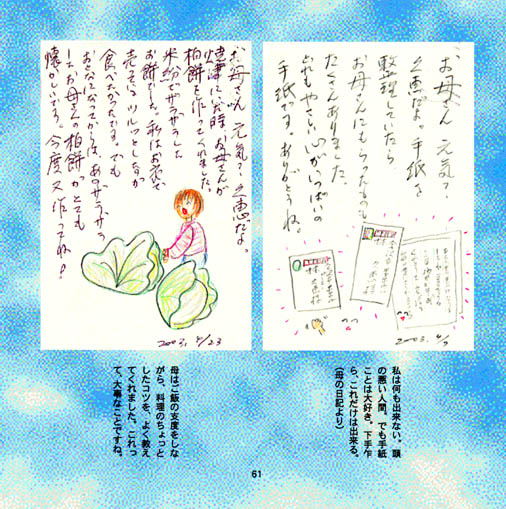 お母さん 元気?
久恵だよ。手紙を
整理していたら
お母さんにもらったものも
たくさんありました。
どれもやさしい心がいっぱいの
手紙です。ありがとうね。
2003. 4/
お母さん 元気? 久恵だよ。
焼津にいた時、お母さんが
柏餅を作ってくれました。
米粉でザラザラした
お餅でした。私はお店で
売っている ツルッとしたのが
食べたかったです。でも
おとなになってからは、あのザラザラ
したお母さんの柏餅がとても
懐かしいです。今度又作ってね!
2003. 4/23
私は何も出来ない。頭
の悪い人間。でも手紙
ことは大好き。下手乍
ら、これだけは出来る。
(母の日記より)
母はご飯の支度をしな
がら、料理のちょっと
したコツを、よく教え
てくれました。これっ
て、大事なことですね。
61